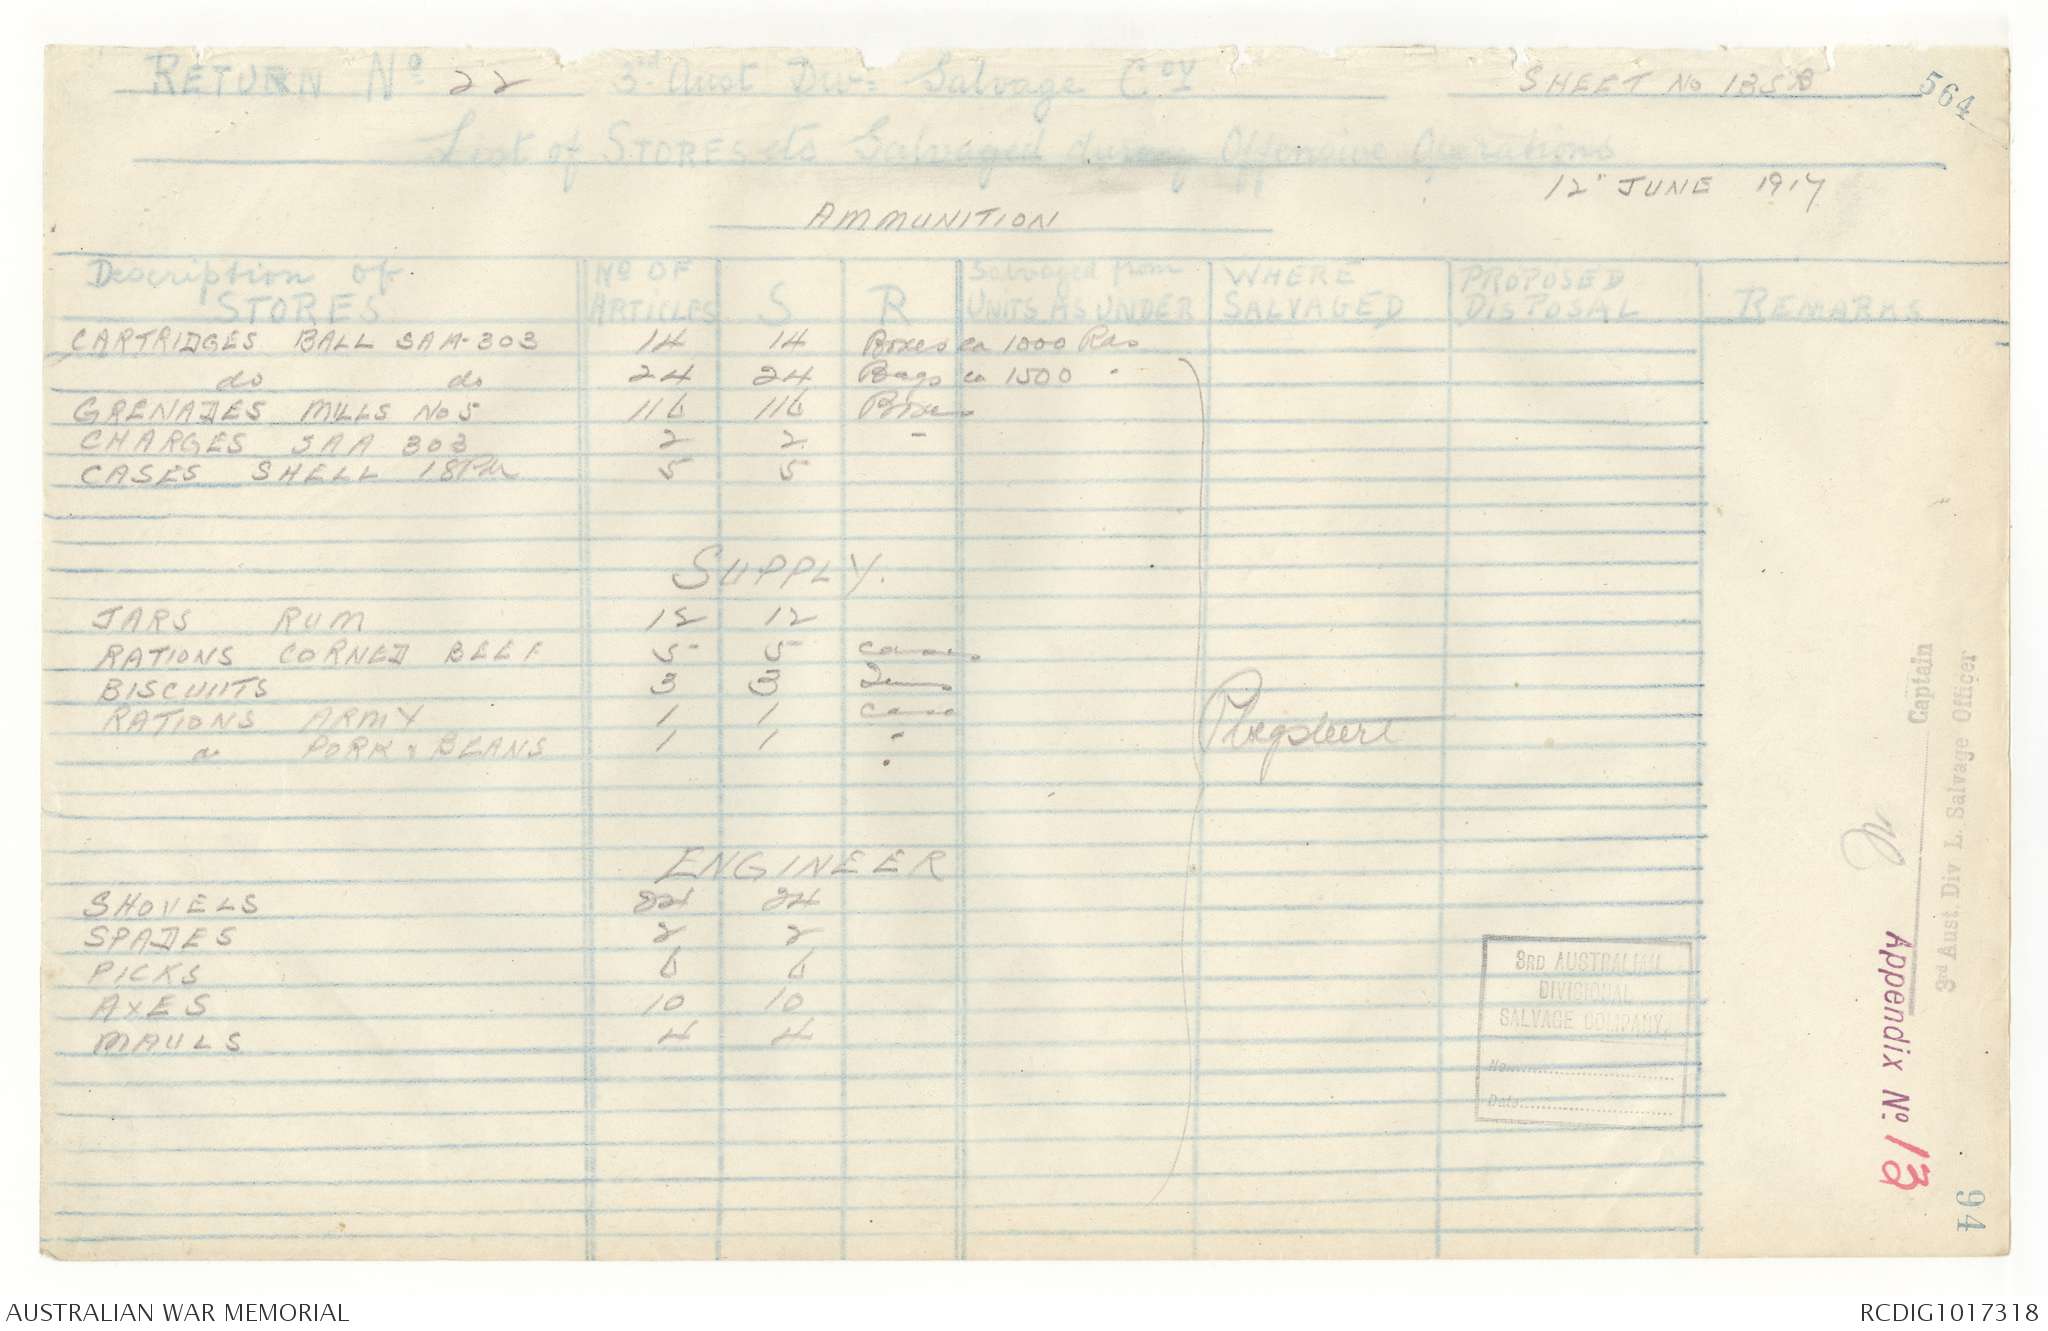 RETURN No 22 3rd Aust Div: Salvage Coy SHEET No 135B 564
List of STORES etc Salvaged during Offensive Operations
12" JUNE 1917
AMMUNITION
Description of STORES No OF ARTICLES S R Salvaged from UNITS AS UNDER WHERE SALVAGED PROPOSED DISPOSAL REMARKS
CARTRIDGES BALL SAA .303 14 14 Boxes ea 1000 Rds
do do 24 24 Bags ea 1500 "
GRENADES MILLS No 5 116 116 Boxes
CHARGES SAA 303 2 2 -
CASES SHELL 18Pdr 5 5
SUPPLY.
JARS RUM 12 12
RATIONS CORNED BEEF 5 5 cases
BISCUITS 3 3
RATIONS ARMY 1 1 case
do PORK & BEANS 1 1 "
Plegsteert
ENGINEER
SHOVELS 24 24
SPADES 2 2
PICKS 6 6
AXES 10 10
MAULS 4 4
3RD AUSTRALIAN
DIVISIONAL
SALVAGE COMPANY.
No.
Date
Captain
3rd Aust Div L. Salvage Officer
Appendix No. 13
94
AUSTRALIAN WAR MEMORIAL RCDIG1017318